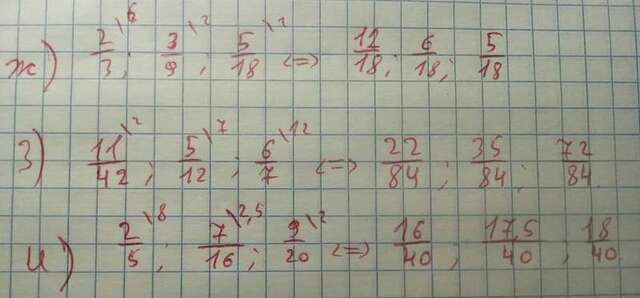 ж) 2/3 \6 ; 3/9 \2 ; 5/18 \1 <=> 12/18 ; 6/18 ; 5/18
З) 11/42 \2 ; 5/12 \7 ; 6/7 \12 <=> 22/84 ; 35/84 ; 72/84
и) 2/5 \8 ; 7/16 \2,5 ; 9/20 \2 <=> 16/40 ; 17,5/40 ; 18/40